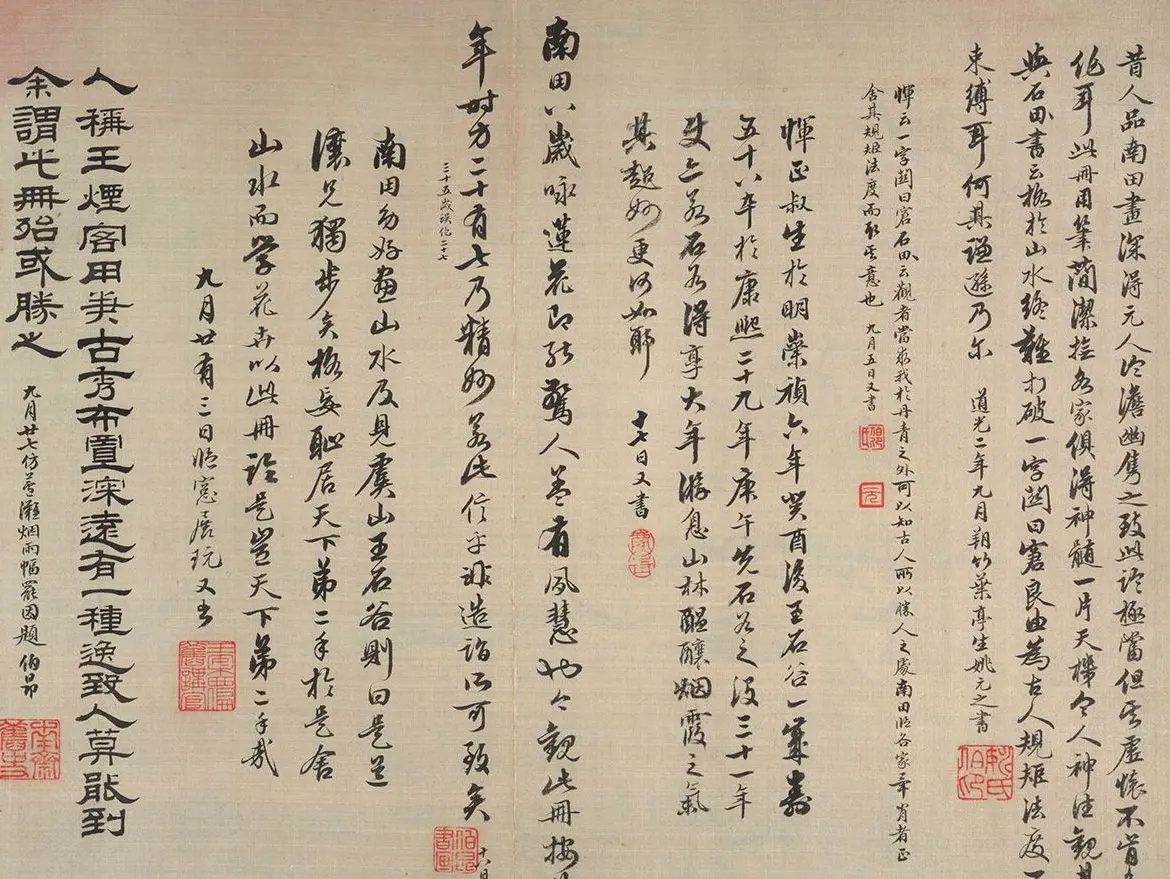 昔人品南田畫深得元人冷澹幽雋之致此論極當但其虛懷不肯
他耳此冊用筆簡潔撫各家俱得神髓一片天機令人神往觀其
與石田書云格於山水終難打破一字關曰窘良由為古人規矩法度
束縛耳何其謙遜乃尔 道光二年九月朔竹葉亭生姚元之書
惲云一字關曰窘石田云觀者當求我於丹青之外可以知古人所以勝人之處南田臨各家筆肖者正
舍其規矩法度而取其意也 九月五日又書
惲正叔生於明崇禎六年癸酉後王石谷一歲壽
五十八卒於康熙二十九年庚午先石谷之沒三十一年
使亦若石谷得享大年游息山林醞釀烟霞之氣
其超妙更何如耶 十七日又書
南田八歲咏蓮花即能驚人蓋有夙慧也今觀此冊按
年時方二十有七乃精妙若此信乎非造詣所可致矣 十八日
三十五歲誤作二十七
南田幼好畫山水及見虞山王石谷則曰是道
讓兄獨步矣格妄恥居天下第二手於是舍
山水而學花卉以此冊論是豈天下第二手哉
九月廿有三日晴窓展玩又書
人稱王煙客用筆古秀布置深遠有一種逸致人莫能到
余謂此冊殆或勝之
九月廿七仿蘆灘烟雨幅罷因題 伯昂
姚氏伯昂
伯昂書畫
南齋舊史